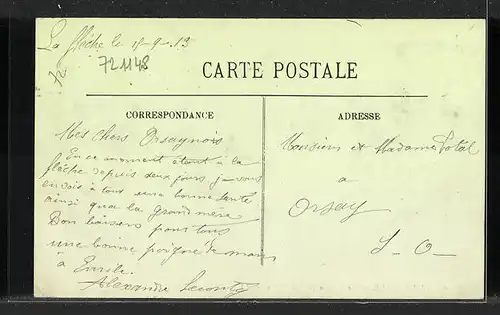 La flêche le 15-9-13
721148
CARTE POSTALE
CORRESPONDANCE
ADRESSE
Mes chers Orsaynois
En ce moment étant à la
flêche depuis deux jours je vous
envois à tous une bonne santé
ainsi que la grand mère
Bon baisers pour tous
une bonne poignée de main
à Emile
Alexandre
Monsieur et Madame
a
Orsay
S-O-